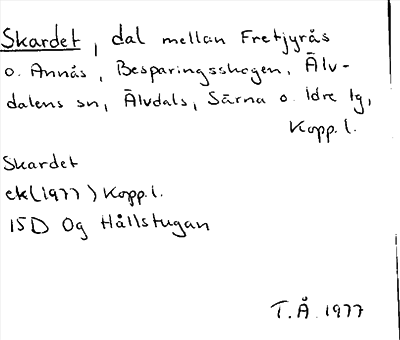 Skardet, dal mellan Fretjyrås
o. Annås, Besparingsskogen, Älv-
dalens sn, Älvdals, Särna o. Idre lg,
Kopp. l.
Skardet
ek (1977) Kopp. l.
15D 0g Hållstugan
T. Å. 1977